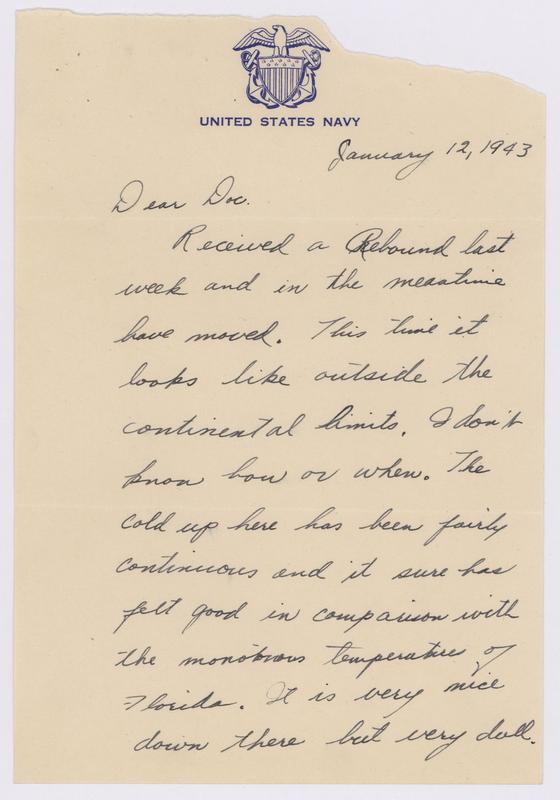 UNITED STATES NAVY
January 12, 1943
Dear Doc.
Received a Rebound last
week and in the meantime
have moved. This time it
looks like outside the
continental limits. I don't
know how or when. The
cold up here has been fairly
continuous and it sure has
felt good in comparison with
the monotonous temperature of
Florida. It is very nice
down there but very dull.